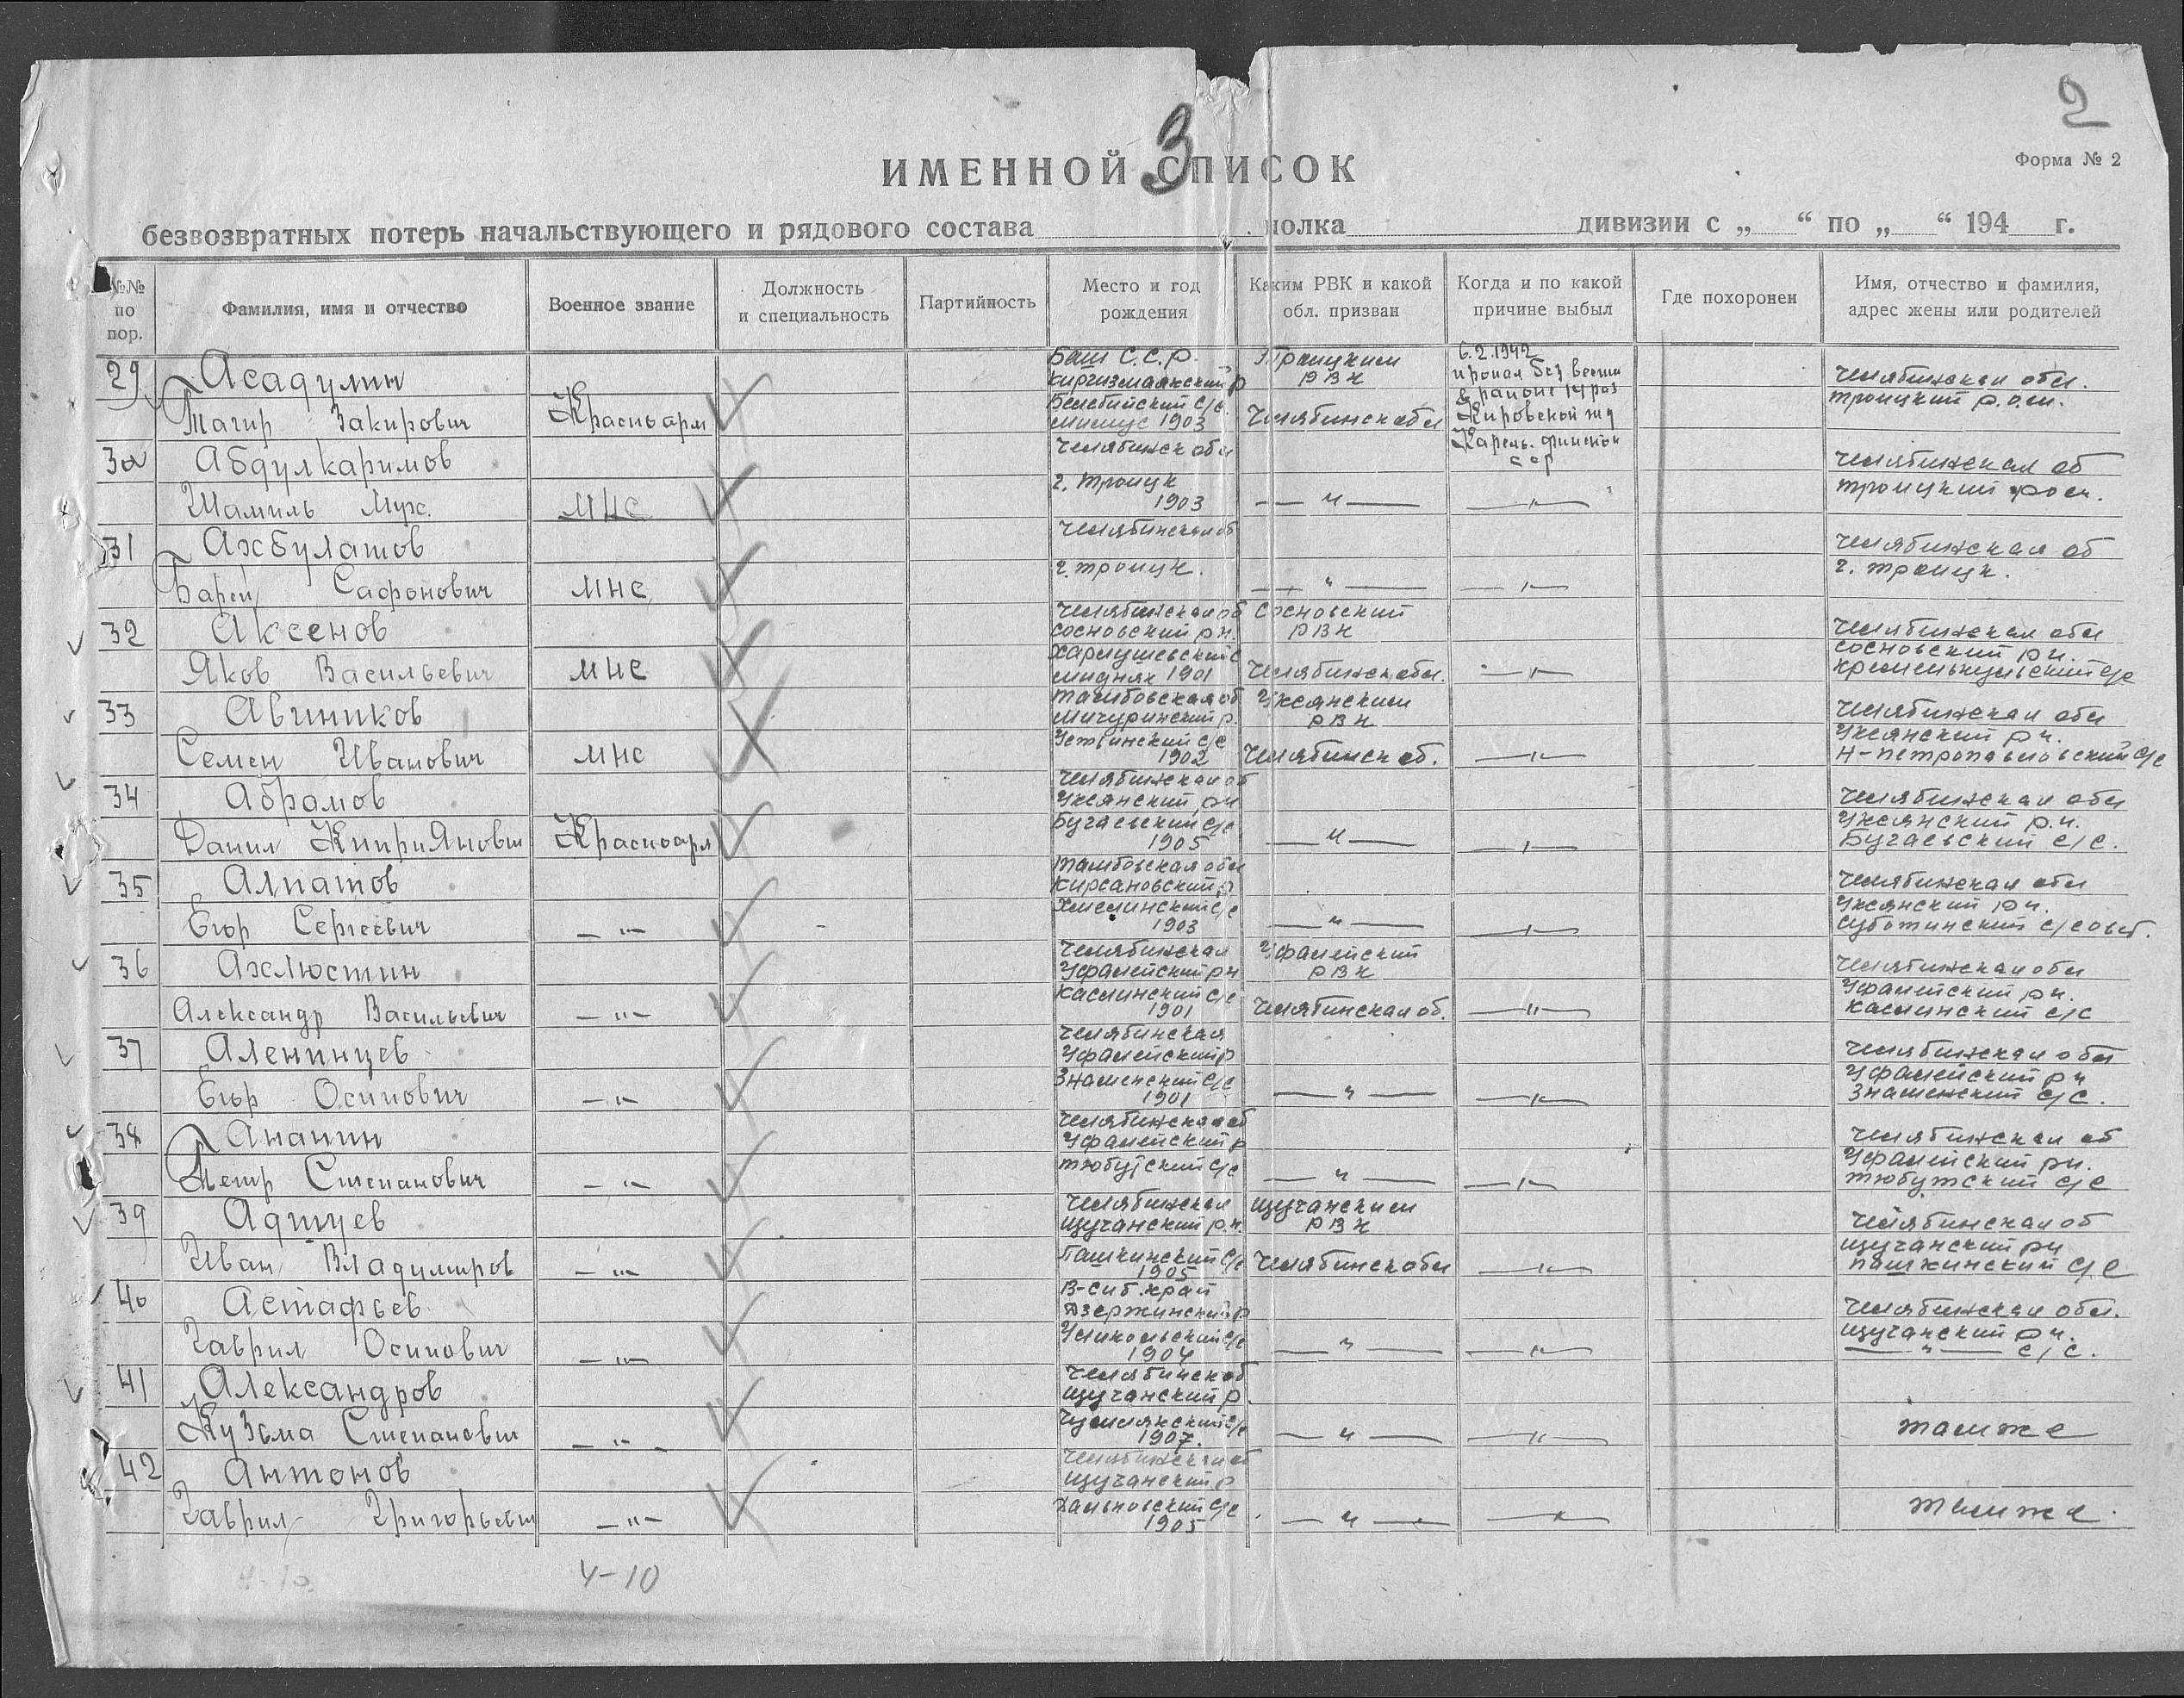 2
3
Форма № 2
ИМЕННОЙ СПИСОК
безвозвратных потерь начальствующего и рядового состава полка дивизии с „ “ по „ “ 194 г.
№№ по пор.
Фамилия, имя и отчество
Военное звание
Должность и специальность
Партийность
Место и год рождения
Каким РВК и какой обл. призван
Когда и по какой причине выбыл
Где похоронен
Имя, отчество и фамилия, адрес жены или родителей
29 Асадулин
Тагир Закирович
Красноарм
Баш С.С.Р.
1903
Троицким
РВК
Челябинск обл
6.2.1942
пропал без вести
в районе
Кировской жд
Карело-финской
сср
Челябинская обл.
троицкий
30 Абдулкаримов
Шамиль
МНС
Челябинск обл
г. Троицк
1903
— " —
— " —
Челябинская об
троицкий
31 Ахбулатов
Барей Сафонович
МНС
Челябинская об
г. троицк.
— " —
— " —
Челябинская об
г. троицк.
32 Аксенов
Яков Васильевич
МНС
Челябинская об
сосновский рн.
1901
сосновский
РВК
Челябинск обл.
— " —
Челябинская обл
сосновский рн.
33 Авиников
Семен Иванович
МНС
тамбовская об
Мичуринский р.
1902
Уксянским
РВК
Челябинск об.
— " —
Челябинская обл
Уксянский рн.
Н-петропавловский с/с
34 Абрамов
Данил Киприянович
Красноарм
Челябинская об
Уксянский рн
Бугаевский с/с
1905
— " —
— " —
Челябинская обл
Уксянский р.н.
Бугаевский с/с.
35 Алпатов
Егор Сергеевич
— " —
тамбовская обл
Кирсановский р
1903
— " —
— " —
Челябинская обл
Уксянский рн.
суботинский с/совет.
36 Ахлюстин
Александр Васильевич
— " —
Челябинская
Уфалейский рн
Каслинский с/с
1901
Уфалейский
РВК
Челябинская об.
— " —
Челябинская обл
Уфалейский рн.
Каслинский с/с
37 Аленинцев
Егор Осипович
— " —
Челябинская
Уфалейский р
Знаменский с/с
1901
— " —
— " —
Челябинская обл
Уфалейский рн
Знаменский с/с.
38 Ананин
Петр Степанович
— " —
Челябинская об
Уфалейский р
тюбукский с/с
— " —
— " —
Челябинская об
Уфалейский рн.
39
Иван Владимиров
— " —
Челябинская
щучанский р.н.
Пашкинский с/с
1905
щучанским
РВК
Челябинск обл
— " —
Челябинская об
щучанский рн
пашкинский с/с
40 Астафьев
Гаврил Осипович
— " —
В-сиб. край
Дзержинский р
1904
— " —
— " —
Челябинская обл.
щучанский рн.
— " — с/с.
41 Александров
Кузьма Степанович
— " —
Челябинск об
щучанский р.
Чумлякский с/с
1907.
— " —
— " —
тамже
42 Антонов
Гаврил Григорьевич
— " —
Челябинская об
щучанский р
1905
— " —
— " —
тамже
4-10